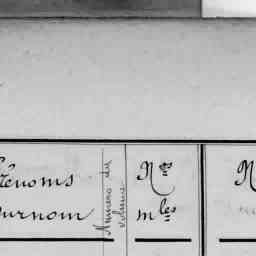 rénoms
urnom
Numéro du
volume
Nos
mles
N